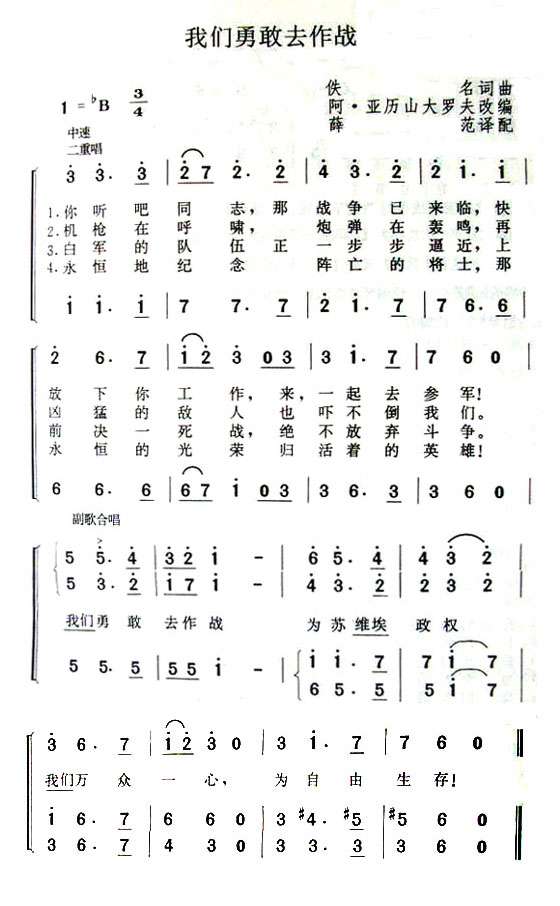 我们勇敢去作战
佚 名词曲
阿·亚历山大罗夫改编
薛 范译配
1=♭B 3/4
中速
二重唱
3 3. 3 | 2 7 2. 2 | 4 3. 2 | 2 1. 1
1.你听吧同志，那战争已来临，快
2.机枪在呼啸，炮弹在轰鸣，再
3.白军的队伍正一步步逼近，上
4.永恒地纪念阵亡的将士，那
1 1. 1 | 7 7. 7 | 2 1. 7 | 7 6. 6
2 6. 7 | 1 2 3 0 3 | 3 1. 7 | 7 6 0
放下你工作，来，一起去参军！
凶猛的敌人也吓不倒我们。
前决一死战，绝不放弃斗争。
永恒的光荣归活着的英雄！
6 6. 6 | 6 7 1 0 3 | 3 6. 3 | 3 6 0
副歌合唱
5 5. 4 | 3 2 1 - | 6 5. 4 | 4 3 2
5 3. 2 | 1 7 1 - | 4 3. 2 | 2 3 2
我们勇敢去作战 为苏维埃政权
5 5. 5 | 5 5 1 - | 1 1. 7 | 7 1 7
6 5. 5 | 5 1 7
3 6. 7 | 1 2 3 0 | 3 1. 7 | 7 6 0
我们万众一心，为自由生存！
1 6. 7 | 6 6 0 | #3 #4. #5 | #5 6 0
3 6. 7 | 4 3 0 | 3 3. 3 | 3 6 0